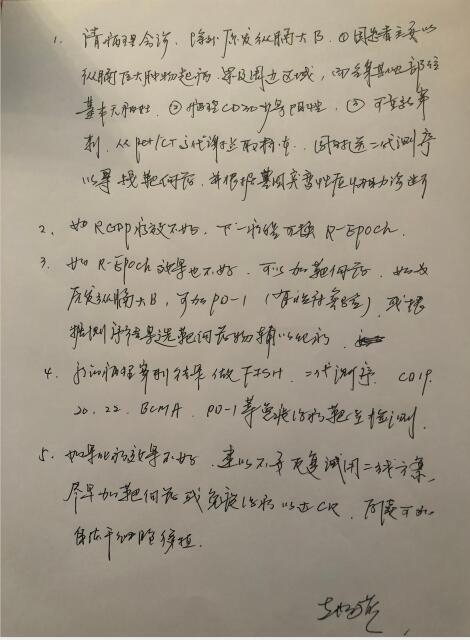 1. 请病理会诊，除外原发纵膈大B. ①因患者主要以
纵膈巨大肿物起病，累及周边区域，而全身其他部位
基本无肿大. ②病理CD30少量阳性. ③可重新穿
刺，从pet/CT高代谢点取标本. 同时送二代测序
以寻找靶向药，并根据基因突变
2. 如RGDP疗效不好，下一疗程可换R-Epoch.
3. 如R-Epoch效果也不好，可以加靶向药. 如为
原发纵膈大B，可加PD-1（有临床实验）或根
据测序结果选靶向药物辅以化疗.
4. 新的病理穿刺结果做FISH. 二代测序. CD19.
20. 22. BCMA. PD-1等免疫治疗靶点检测.
5. 如果化疗效果不好，建议不再反复试用二线方案，
尽早加靶向药或免疫治疗以达CR，后续可加
自体干细胞移植.